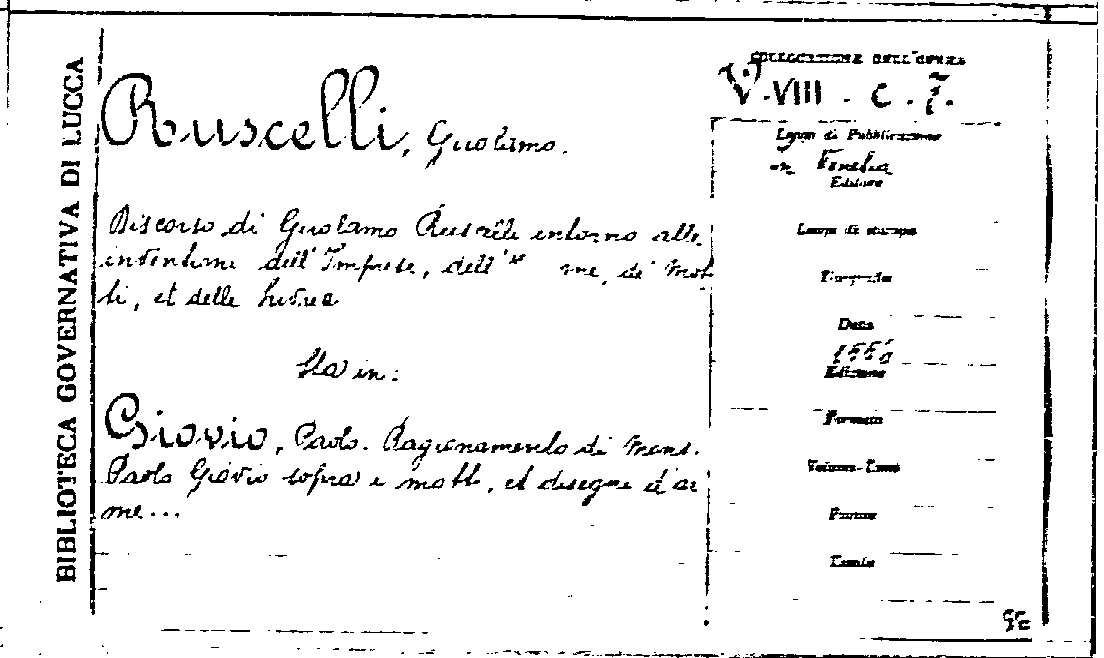 BIBLIOTECA GOVERNATIVA DI LUCCA
Ruscelli, Girolamo.
Discorso di Girolamo Ruscelli intorno alle
inventioni dell'Imprese, dell' me, di Mot
ti, et delle livree
Sta in:
Giovio, Paolo. Ragionamento di Mons.
Paolo Giovio sopra i motti, et disegni d'ar
me...
COLLOCAZIONE DELL'OPERA
V.VIII. C. 7.
Luogo di Pubblicazione
in Venetia
Editore
Luogo di stampa
Data
Edizione
Formato